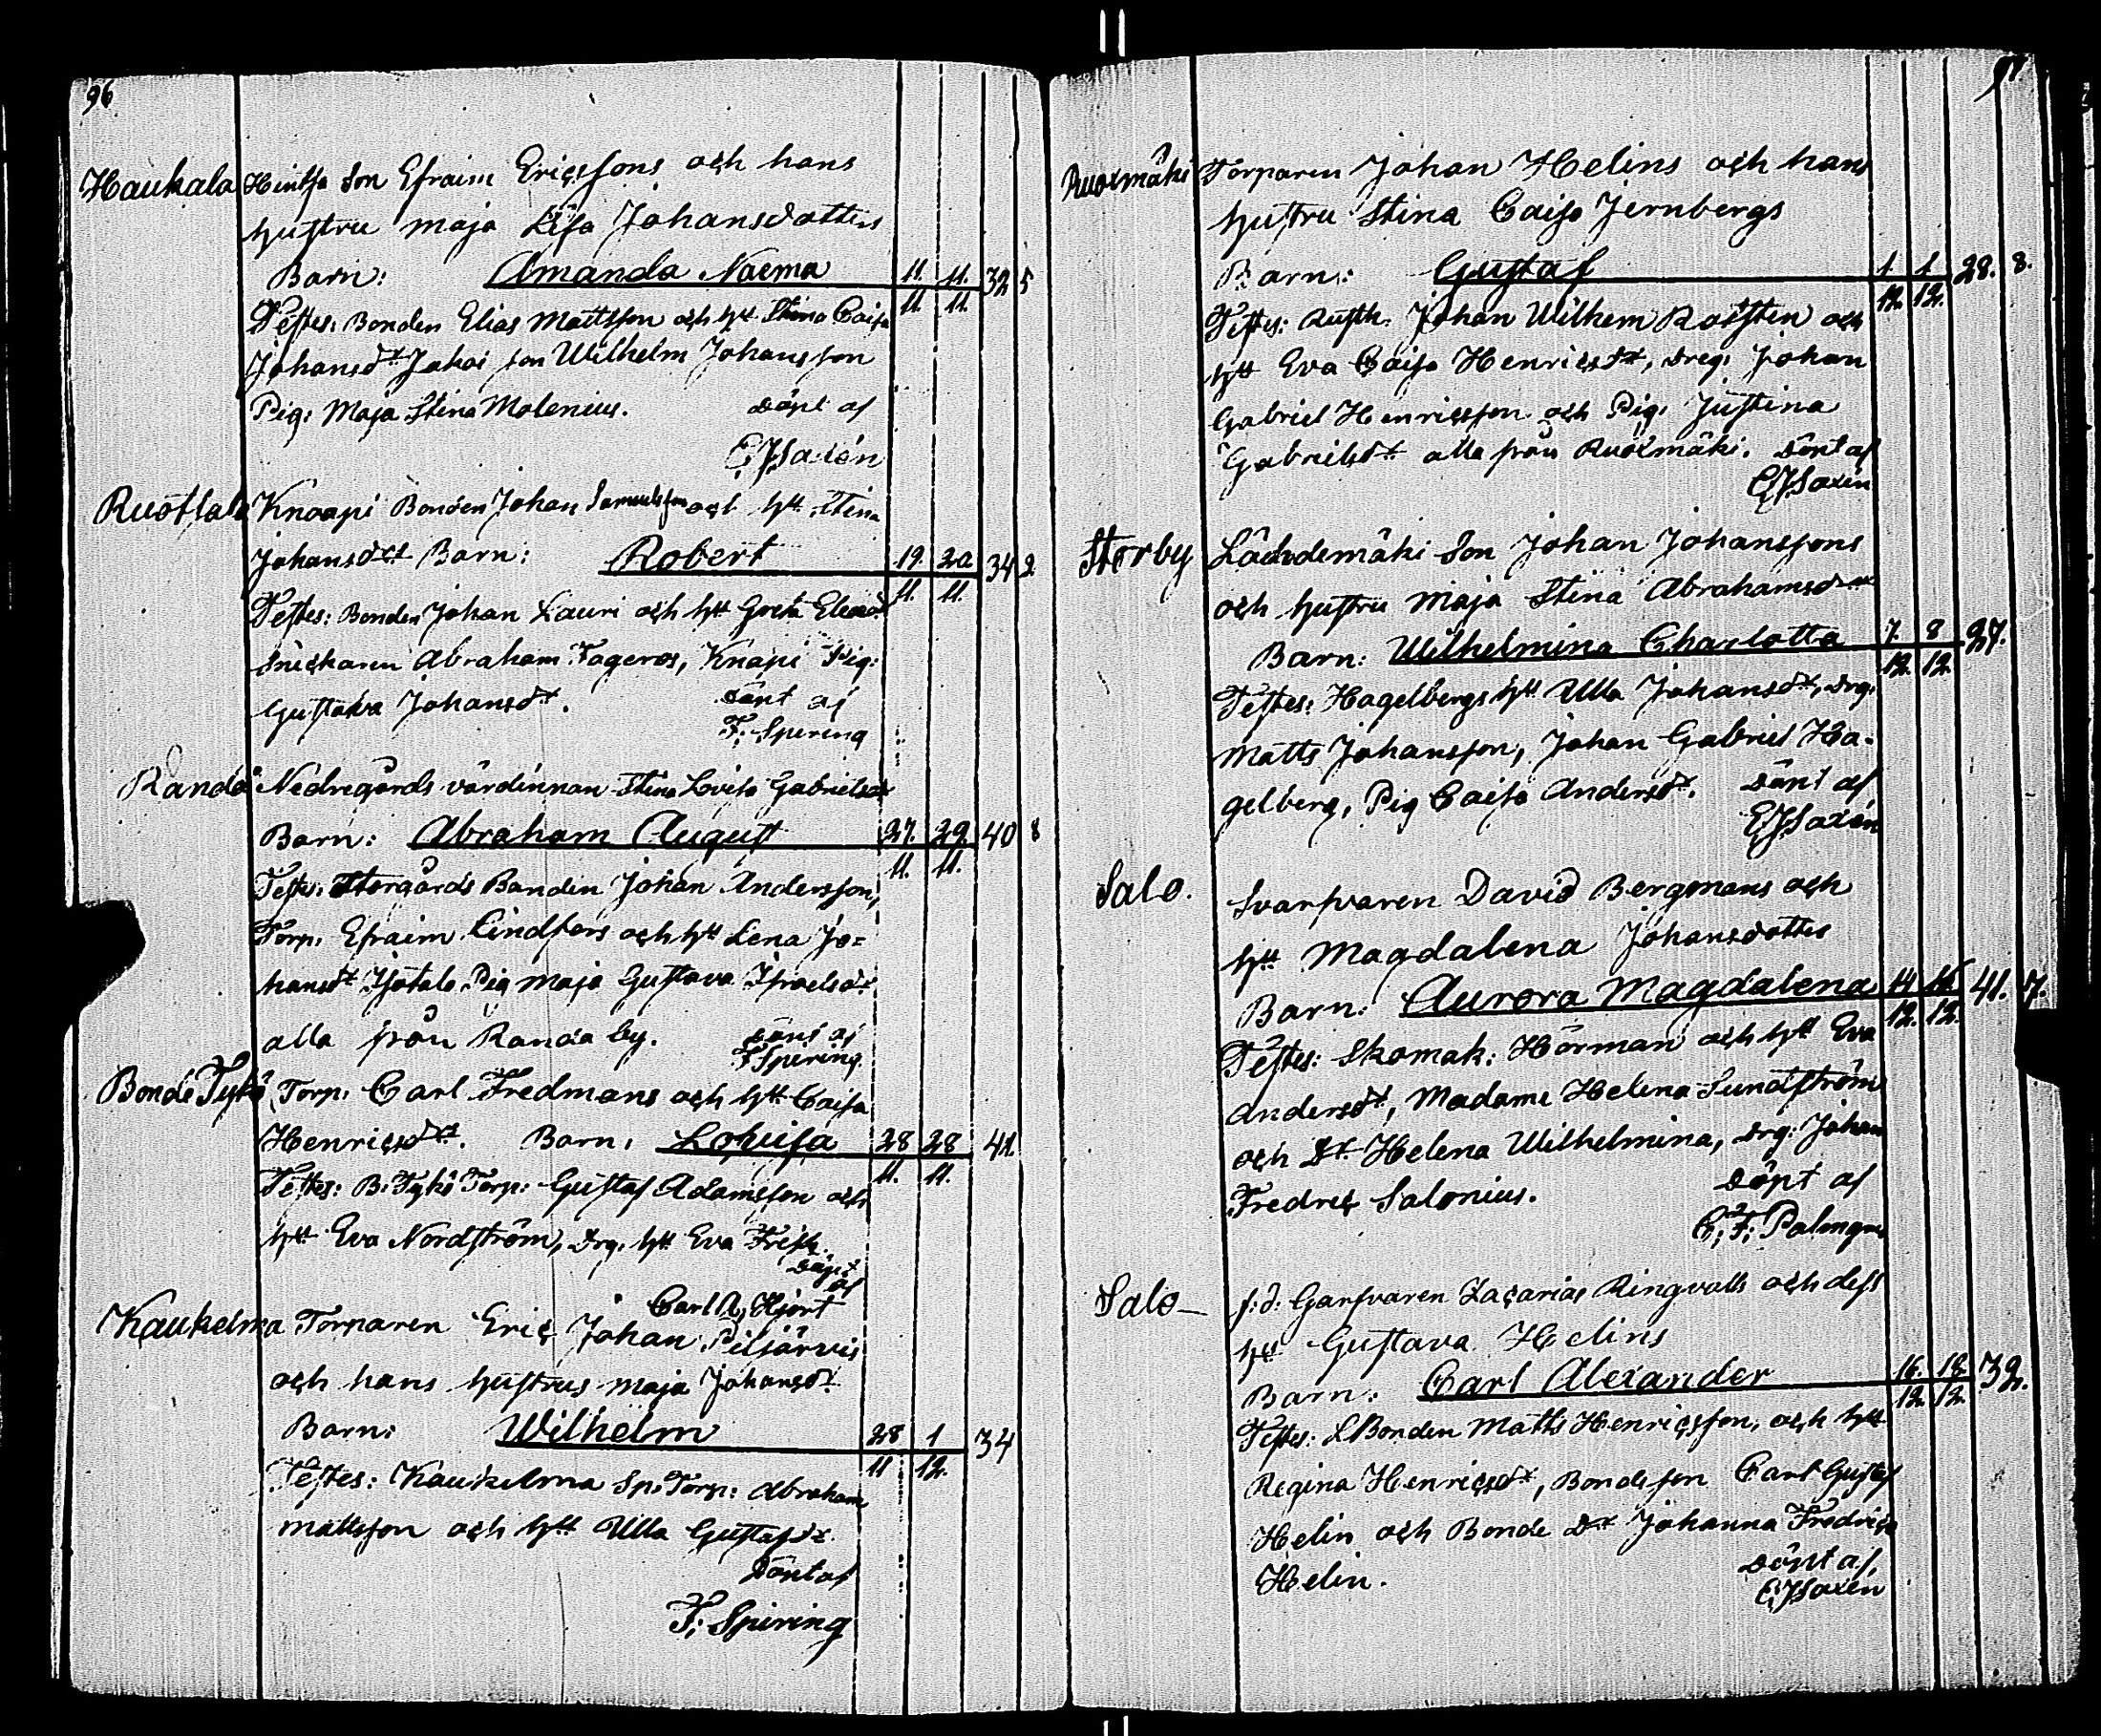 96
Haukala Hintsa Son Efraim Ericssons och hans
hustru Maja Lisa Johansdotters
Barn: Amanda Naema 11. 11. 32 5
11. 11.
Testes: Bonden Elias Mattsson och htt Stina Caisa
Johansdr Jakoi son Wilhelm Johansson
Pig: Maja Stina Molenius. döpt af
E J Saxén
Ruottala Knaapi Bonden Johan Samuelsson och htt Stina
Johansdrs Barn: Robert 19. 20 34 2
11. 11.
Testes: Bonden Johan Lauri och htt Greta
Snickaren Abraham Fageros, Knapi Pig:
Gustava Johansdr. döpt af
F. Spiring
Randa Nedregårds värdinnan Stina Lovisa Gabrielsdr
Barn: Abraham August 27. 29. 40 8
11. 11.
Testes: Storgårds Bonden Johan Andersson,
Torp. Efraim Lindfors och htt Lena Jo=
hansdr Isotalo Pig Maja Gustava Israelsdr
alla från Randa by. döpt af
F Spiring
Bonde Tykö Torp. Carl Fredmans och htt Caisa
Henricsdrs. Barn: Lovisa 28 28 41
11. 11.
Testes: B. Tykö Torp: Gustaf Adamsson och
htt Eva Nordström, Drg. htt Eva Frisk.
döpt
af
Carl A. Hjort
Kaukelma Torparen Eric Johan Piljärvis
och hans hustrus Maja Johansdr
Barn: Wilhelm 28 1 34
11 12.
Testes: Kaukelma Sp. Torp: Abraham
Mattsson och htt Ulla Gustafsdr.
Döpt af
F. Spiring
97
Ruotmäki Torparen Johan Helins och hans
hustru Stina Caisa Jernbergs
Barn: Gustaf 1. 1. 28. 8.
12. 12.
Testes: Rusth. Johan Wilhem Rotsten och
htt Eva Caisa Henricsdr, Dreg. Johan
Gabriel Henricsson och Pig. Justina
Gabrielsdr alla från Ruotmäki. Döpt af
E J Saxén
Storby Lähdemäki Son Johan Johanssons
och hustru Maja Stina Abrahamsdrs
Barn: Wilhelmina Charlotta 7. 8 27.
12. 12.
Testes: Hagelbergs htt Ulla Johansdr, Drg.
Matts Johansson, Johan Gabriel Ha-
gelberg, Pig Caisa Andersdr. Döpt af
E J Saxén
Salo. Svarfvaren David Bergmans och
htt Magdalena Johansdotters
Barn: Aurora Magdalena 14 16 41. 7.
12. 12.
Testes: Skomak: Hörman och htt Eva
Andersdr, Madame Helena Sundström
och Dr Helena Wilhelmina, Drg. Johan
Fredric Salonius. Döpt af
C. F. Palmgren
Salo — f.d. Garfvaren Zacarias Ringvalls och dess
htt Gustava Helins
Barn: Carl Alexander 16. 18. 32.
12. 12.
Testes: LBonden Matts Henricsson, och htt
Regina Henricsdr, Bondeson Carl Gustaf
Helin och Bonde Dr Johanna Fredrica
Helin. Döpt af
E J Saxén